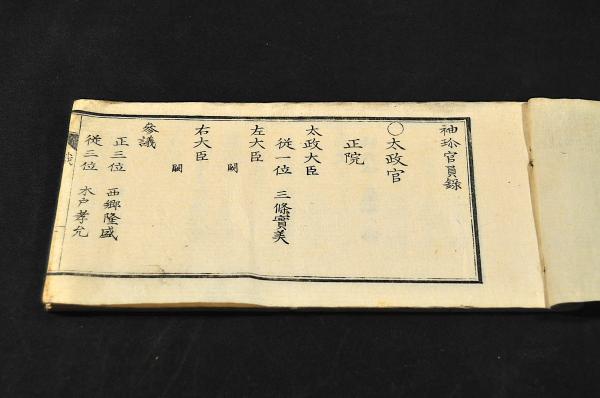 袖珍官員録
〇太政官
正院
太政大臣
従一位 三條實美
左大臣
闕
右大臣
闕
參議
正三位 西郷隆盛
従三位 木戸孝允